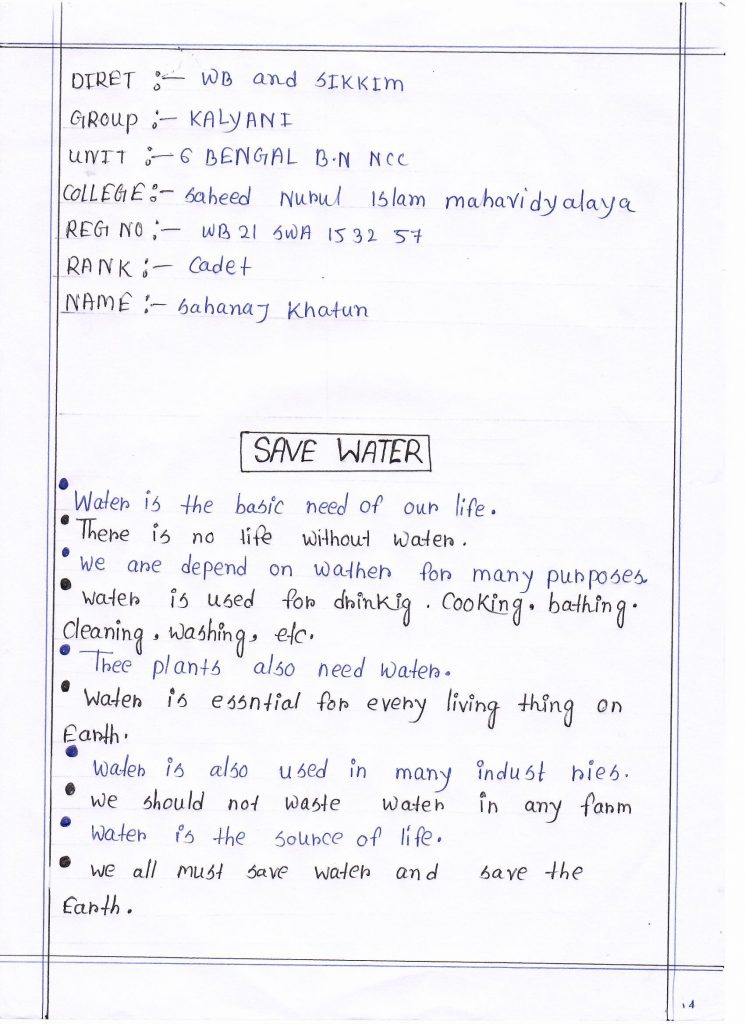 DIRET :- WB and SIKKIM
GROUP :- KALYANI
UNIT :- 6 BENGAL B.N NCC
COLLEGE :- Saheed Nurul Islam mahavidyalaya
REGI NO :- WB 21 SWA 15 32 57
RANK :- Cadet
NAME :- Sahanaj Khatun
SAVE WATER
• Water is the basic need of our life.
• There is no life without water.
• We are depend on wather for many purposes.
• Water is used for drinkig. Cooking. bathing.
Cleaning, washing, etc.
• Thee plants also need water.
• Water is essntial for every living thing on
Earth.
• Water is also used in many indust ries.
• We should not waste water in any farm
• Water is the source of life.
• We all must save water and save the
Earth.
14